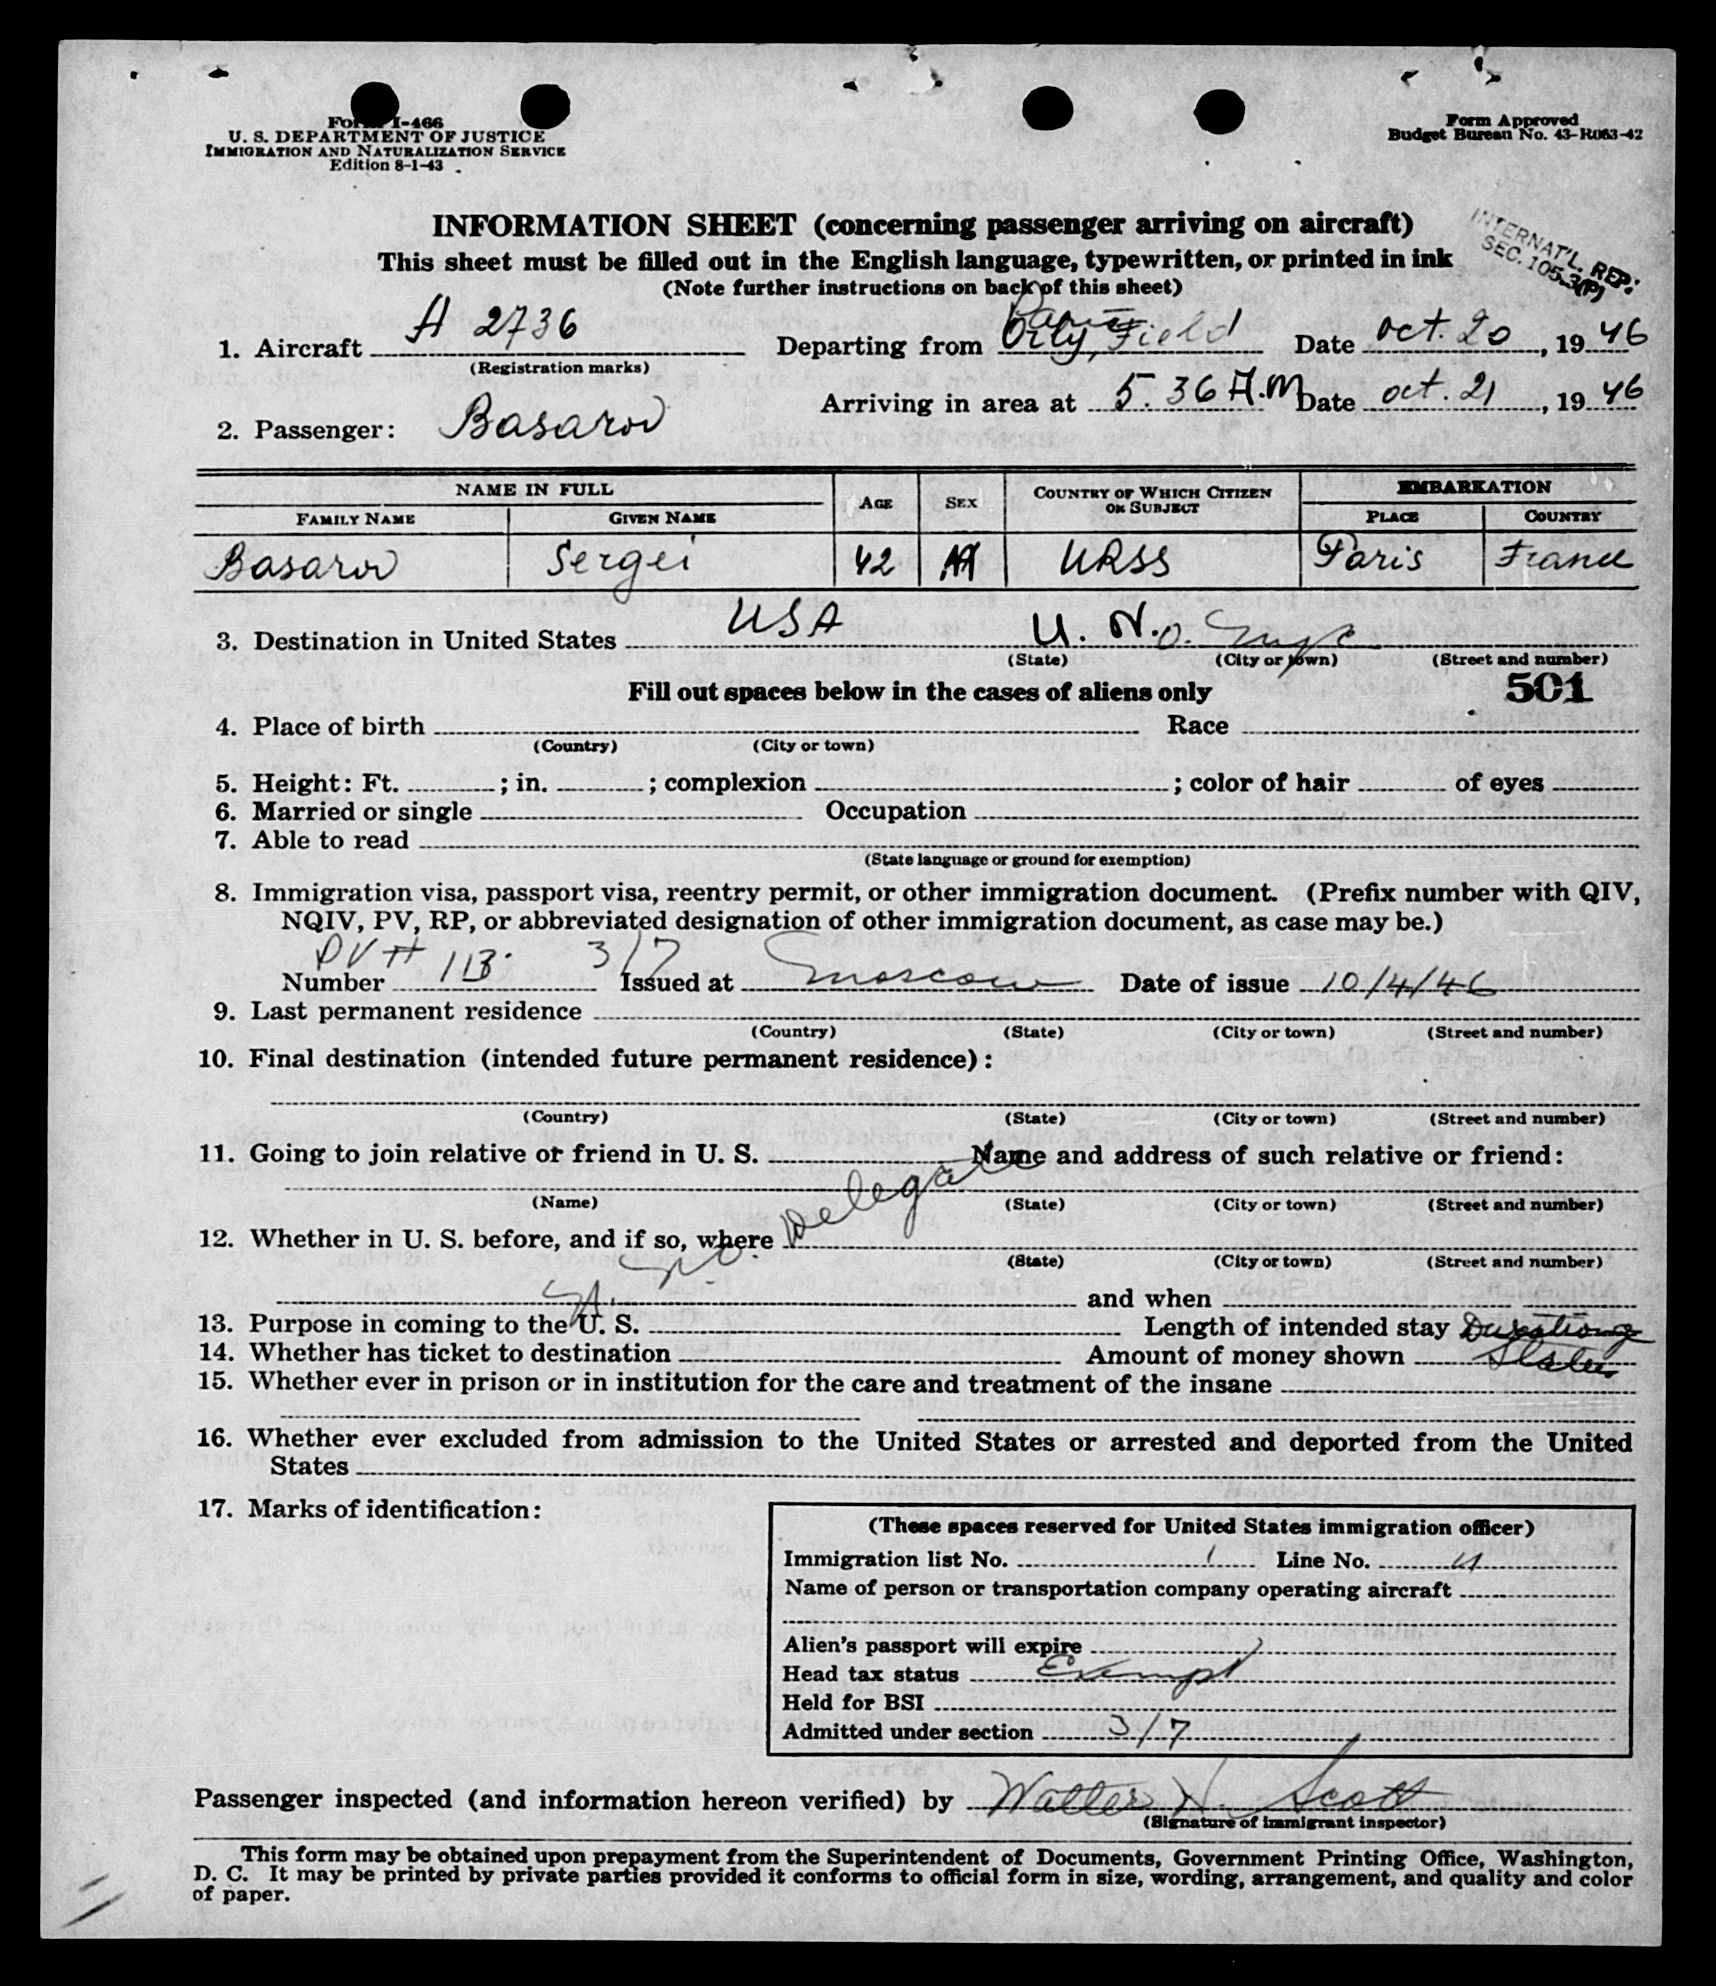 Form I-466
U. S. DEPARTMENT OF JUSTICE
IMMIGRATION AND NATURALIZATION SERVICE
Edition 8-1-43
Form Approved
Budget Bureau No. 43-R063-42
INFORMATION SHEET (concerning passenger arriving on aircraft)
INTERNAT'L. REP:
SEC. 105.3(P)
This sheet must be filled out in the English language, typewritten, or printed in ink
(Note further instructions on back of this sheet)
Paris
1. Aircraft A 2736 Departing from Orly, Field Date oct. 20, 1946
(Registration marks)
Arriving in area at 5.36 A.M Date oct. 21, 1946
2. Passenger: Basarov
NAME IN FULL AGE SEX COUNTRY OF WHICH CITIZEN OR SUBJECT EMBARKATION
FAMILY NAME GIVEN NAME PLACE COUNTRY
Basarov Sergei 42 M URSS Paris France
3. Destination in United States USA U. N. O.
(State) (City or town) (Street and number)
Fill out spaces below in the cases of aliens only 501
4. Place of birth Race
(Country) (City or town)
5. Height: Ft. ; in. ; complexion ; color of hair of eyes
6. Married or single Occupation
7. Able to read
(State language or ground for exemption)
8. Immigration visa, passport visa, reentry permit, or other immigration document. (Prefix number with QIV,
NQIV, PV, RP, or abbreviated designation of other immigration document, as case may be.)
PV # 3/7
Number 113 Issued at Moscow Date of issue 10/4/46
9. Last permanent residence
(Country) (State) (City or town) (Street and number)
10. Final destination (intended future permanent residence):
(Country) (State) (City or town) (Street and number)
11. Going to join relative or friend in U. S. Name and address of such relative or friend:
(Name) (State) (City or town) (Street and number)
Delegate
12. Whether in U. S. before, and if so, where
(State) (City or town) (Street and number)
and when
13. Purpose in coming to the U. S. Length of intended stay Duration of
14. Whether has ticket to destination Amount of money shown Status
15. Whether ever in prison or in institution for the care and treatment of the insane
16. Whether ever excluded from admission to the United States or arrested and deported from the United
States
17. Marks of identification:
(These spaces reserved for United States immigration officer)
Immigration list No. 1 Line No. 4
Name of person or transportation company operating aircraft
Alien's passport will expire
Head tax status Exempt
Held for BSI
Admitted under section 3/7
Passenger inspected (and information hereon verified) by Walter N. Scott
(Signature of immigrant inspector)
This form may be obtained upon prepayment from the Superintendent of Documents, Government Printing Office, Washington,
D. C. It may be printed by private parties provided it conforms to official form in size, wording, arrangement, and quality and color
of paper.